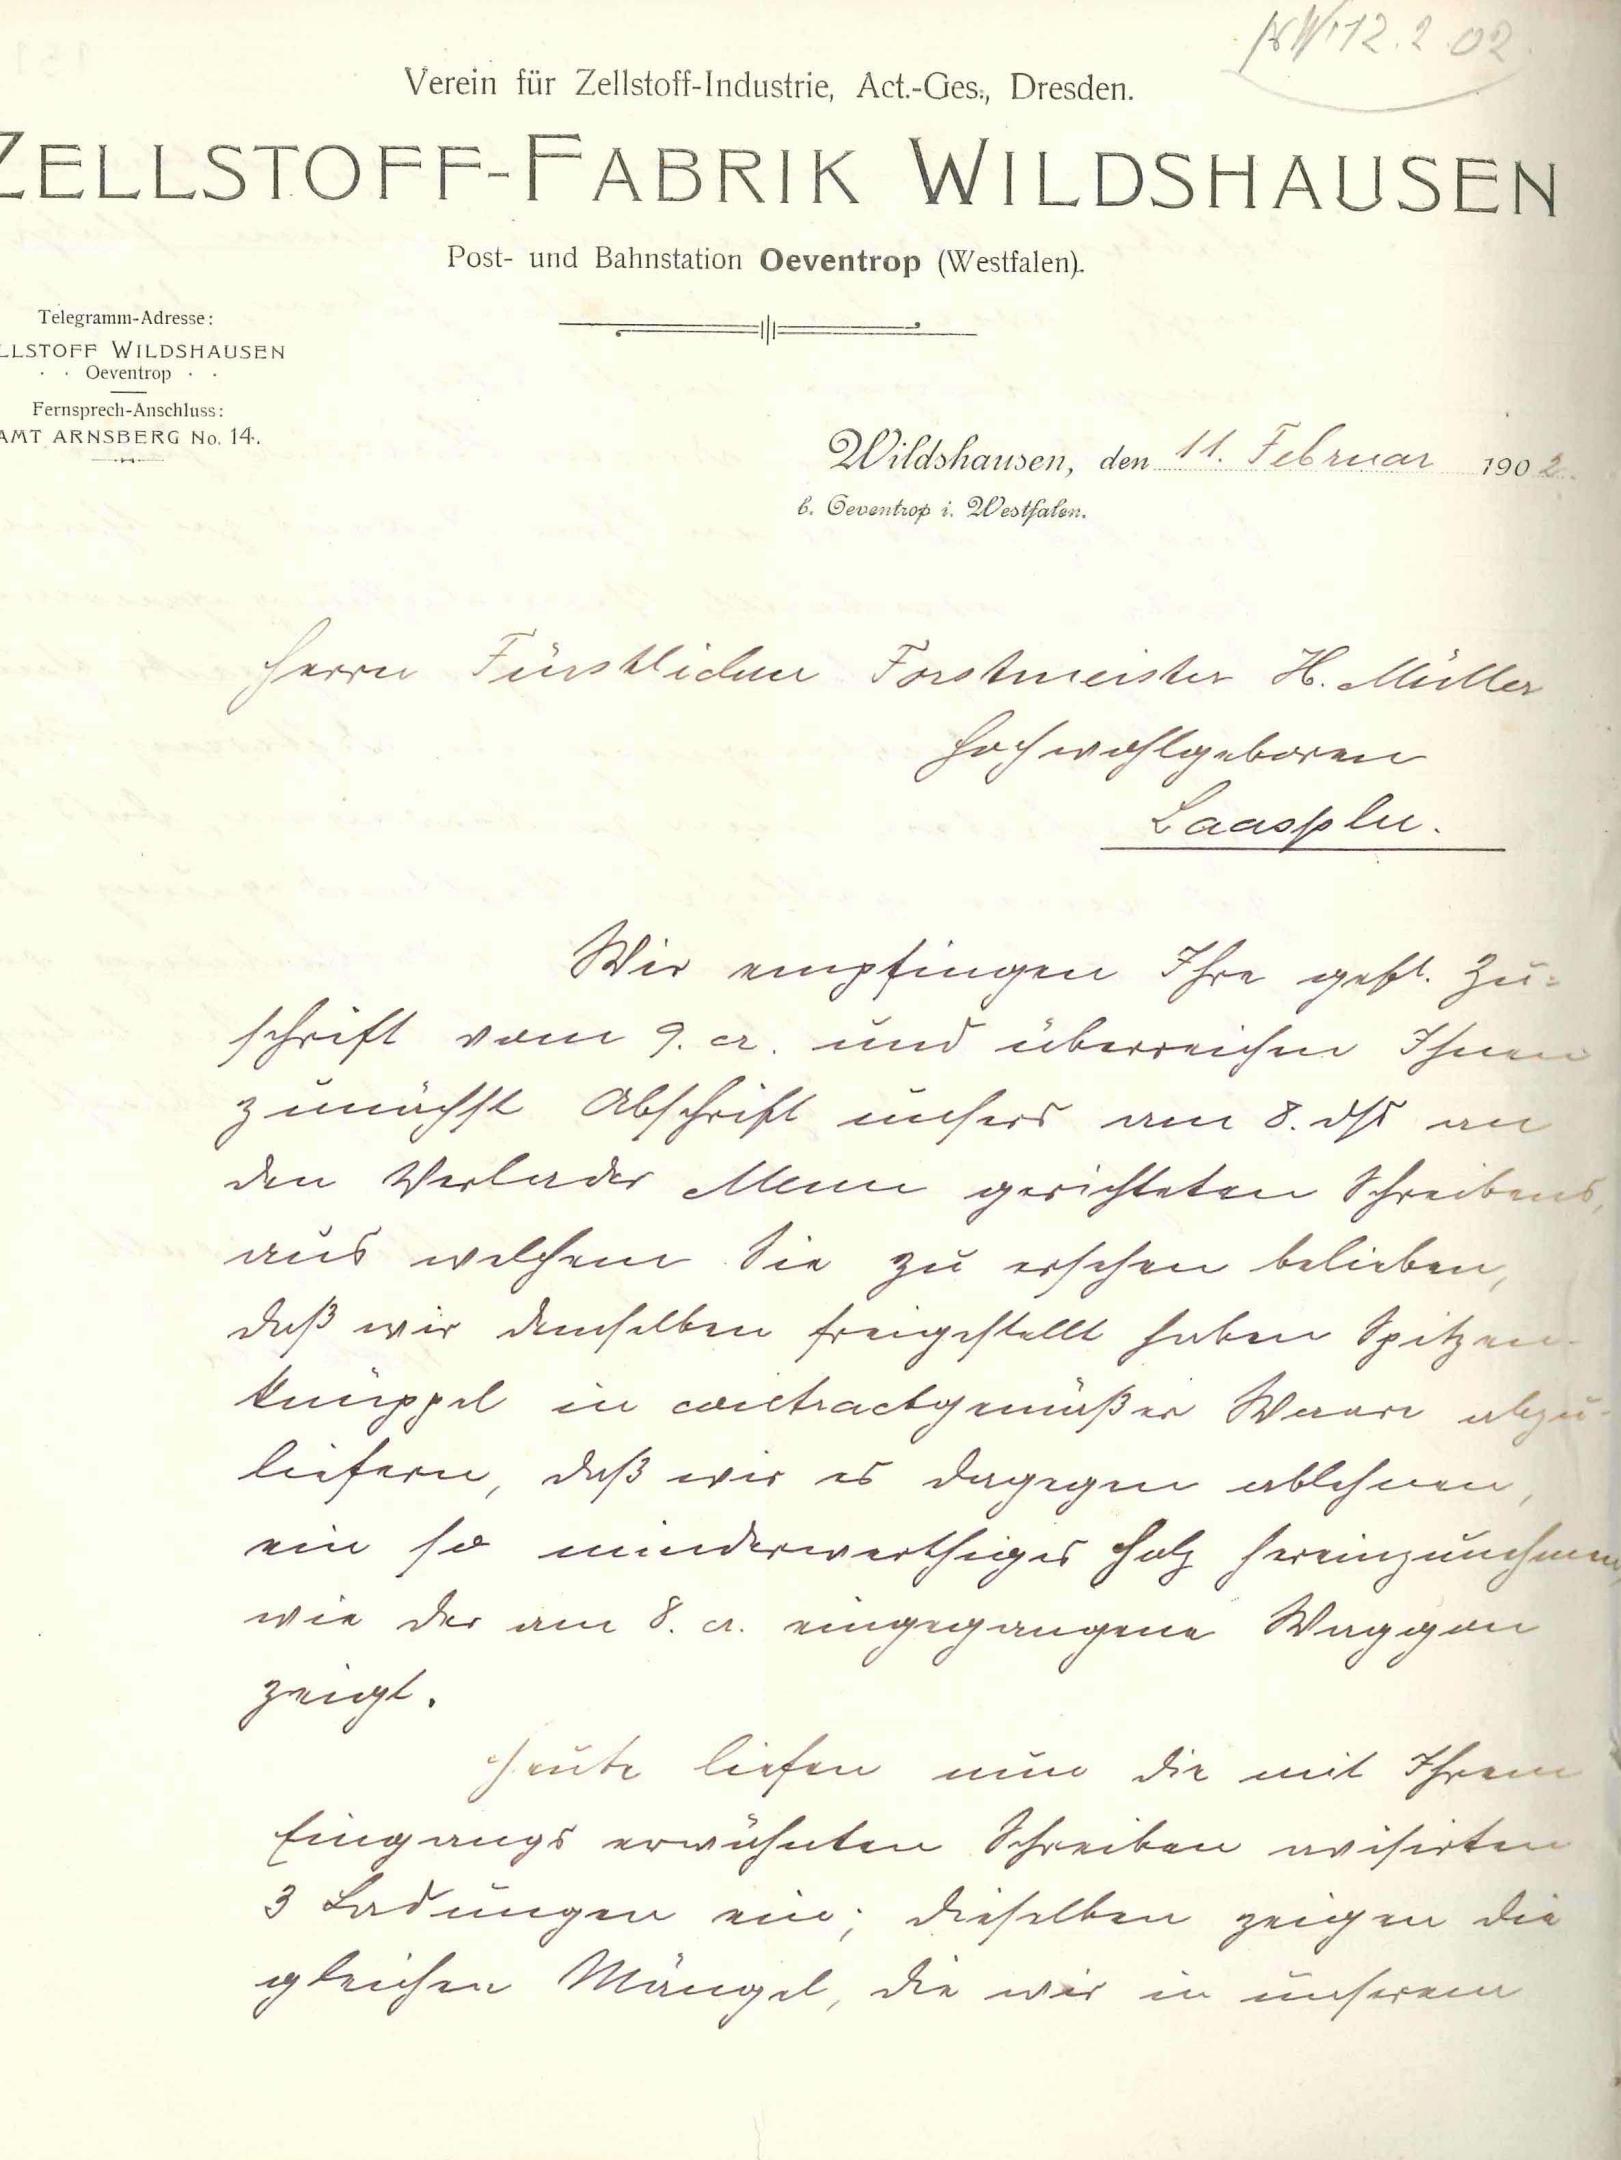 12.2.02.
Verein für Zellstoff-Industrie, Act.-Ges., Dresden.
ZELLSTOFF-FABRIK WILDSHAUSEN
Post- und Bahnstation Oeventrop (Westfalen).
Telegramm-Adresse:
LLSTOFF WILDSHAUSEN
· · Oeventrop · ·
Fernsprech-Anschluss:
AMT ARNSBERG No. 14.
Wildshausen, den 11. Februar 1902.
b. Oeventrop i. Westfalen.
Herrn Fürstlichen Forstmeister H. Müller
Hochwohlgeboren
Laasphe.
Wir empfingen Ihre gefl. Zu-
schrift vom 9. cr. und überreichen Ihnen
zunächst Abschrift unsers am 8. dss an
den Verlader Menn gerichteten Schreibens,
aus welchem Sie zu ersehen belieben,
daß wir demselben freigestellt haben Spitzen-
knüppel in contractgemäßer Waare abzu-
liefern, daß wir es dagegen ablehnen,
ein so minderwerthiges Holz hereinzunehmen,
wie der am 8. cr. eingegangene Waggon
zeigt.
Heute liefen nun die mit Ihrem
Eingangs erwähnten Schreiben avisirten
3 Ladungen ein; dieselben zeigen die
gleichen Mängel, die wir in unserem